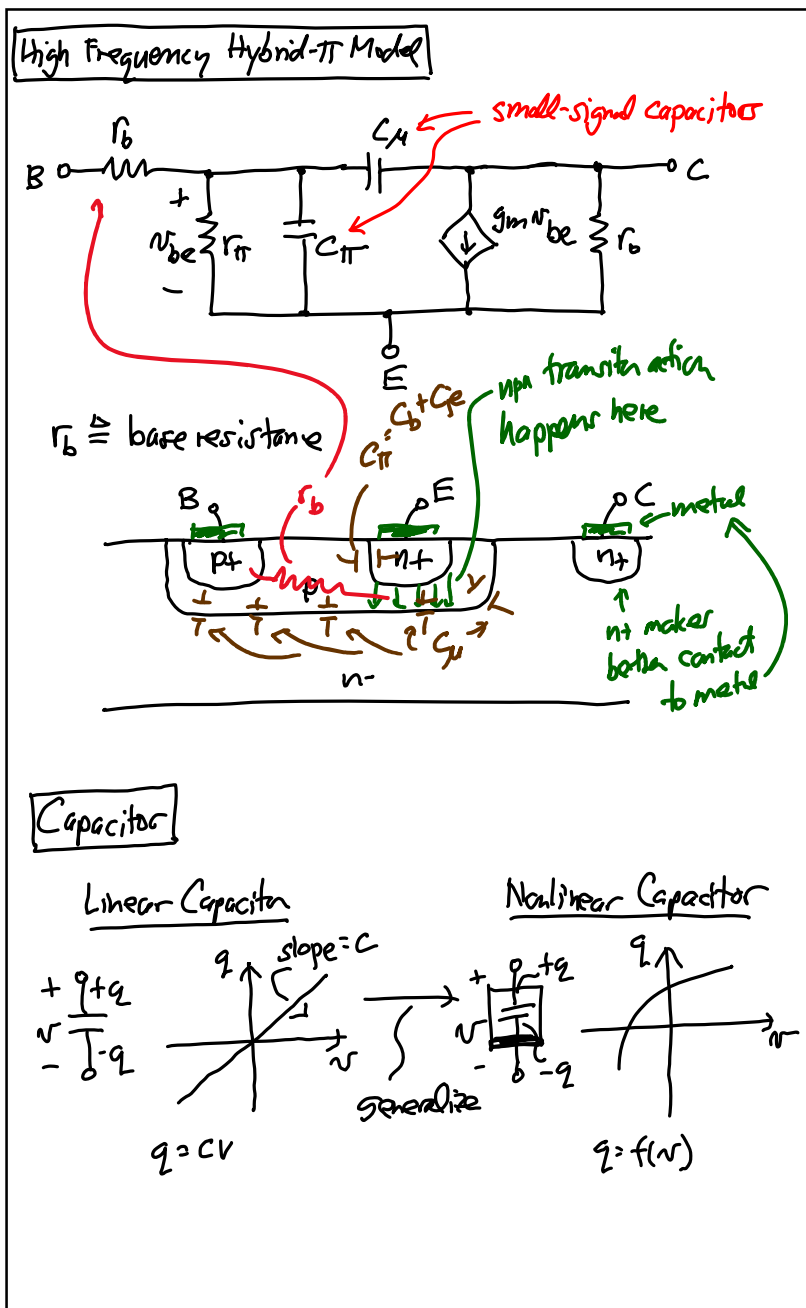 High Frequency Hybrid-π Model
small-signal capacitors
r_b
C_μ
B
C
+
v_be
-
r_π
C_π
g_m v_be
r_o
E
r_b ≜ base resistance
C_π = C_b + C_je
npn transistor action
happens here
r_b
B
E
C
metal
p+
n+
n+
p
C_μ
n-
n+ makes
better contact
to metal
Capacitor
Linear Capacitor
Nonlinear Capacitor
+
+q
v
-
-q
q
slope = C
1
v
generalize
+
+q
v
-
-q
q
v
q = CV
q = f(v)